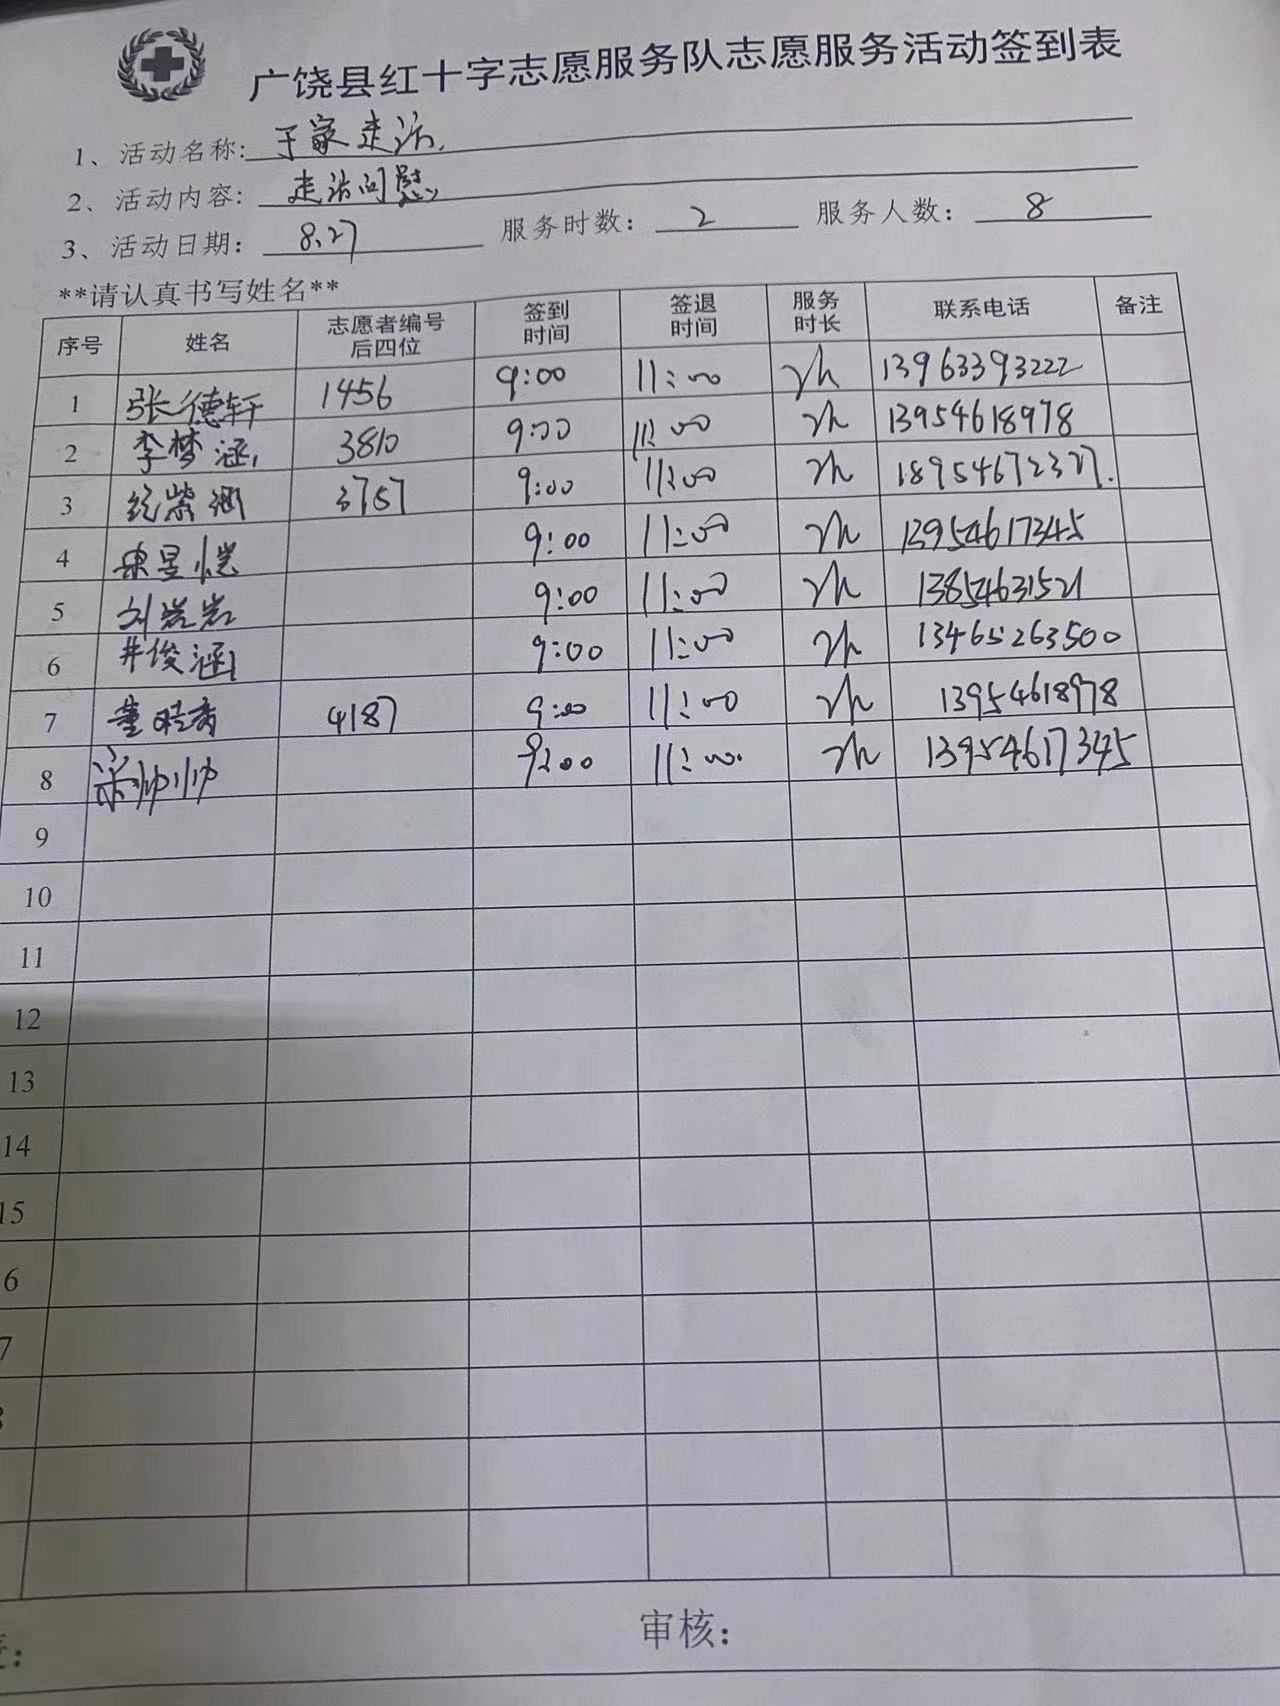 广饶县红十字志愿服务队志愿服务活动签到表
1、活动名称: 于家走访
2、活动内容: 走访问慰
3、活动日期: 8.27 服务时数: 2 服务人数: 8
**请认真书写姓名**
序号 姓名 志愿者编号后四位 签到时间 签退时间 服务时长 联系电话 备注
1 张德轩 1456 9:00 11:00 2h 13963393222
2 李梦涵 3810 9:00 11:00 2h 13954618978
3 紫涵 3757 9:00 11:00 2h 18954672327.
4 9:00 11:00 2h 13954617345
5 刘岩岩 9:00 11:00 2h 13854631521
6 井俊涵 9:00 11:00 2h 13465263500
7 董 4187 9:00 11:00 2h 13954618978
8 梁帅帅 9:00 11:00 2h 13954617345
9
10
11
12
13
14
15
6
7
审核: